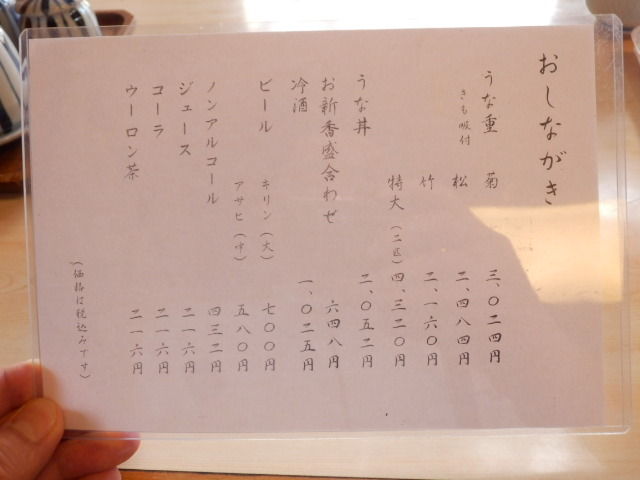 おしながき
うな重 菊 三、〇二四円
きも吸付 松 二、四八四円
竹 二、一六〇円
特大(二匹) 四、三二〇円
うな丼 二、〇五二円
お新香盛合わせ 六四八円
冷酒 一、〇二五円
ビール キリン(大) 七〇〇円
アサヒ(中) 五八〇円
ノンアルコール 四三二円
ジュース 二一六円
コーラ 二一六円
ウーロン茶 二一六円
(価格は税込みです)